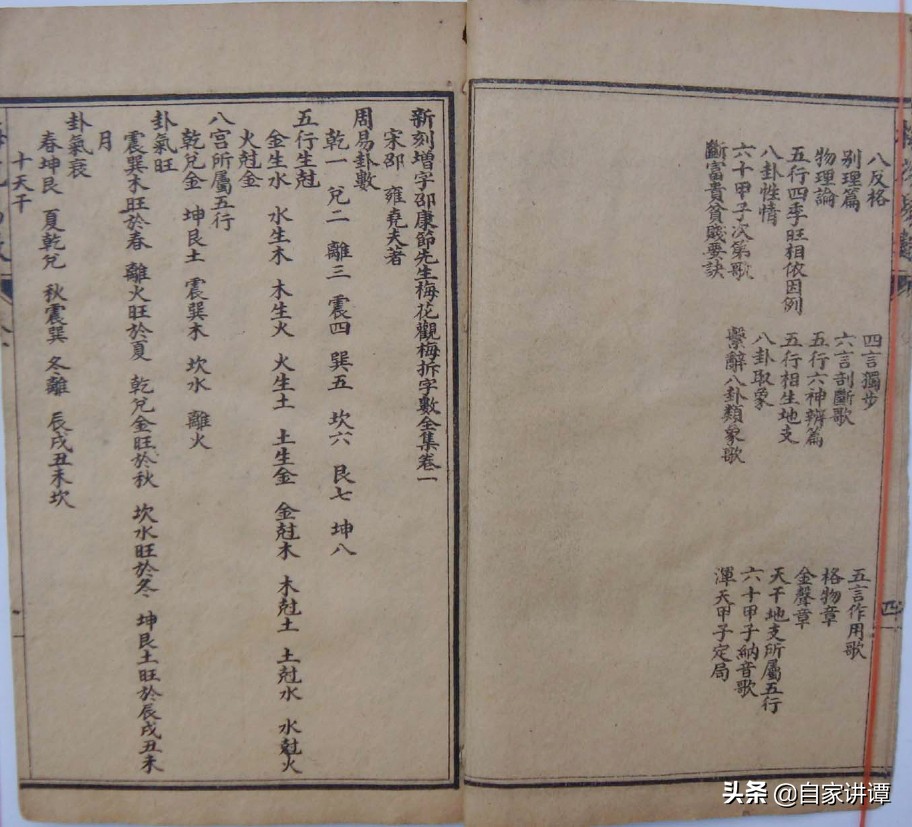 八反格
别理篇
物理論
五行四季旺相依因例
八卦性情
六十甲子次第歌
斷富貴貧賤要訣
四言獨步
六言剖斷歌
五行六神辨篇
五行相生地支
八卦取象
繫辭八卦類象歌
五言作用歌
格物章
金聲章
天干地支所屬五行
六十甲子納音歌
渾天甲子定局
四
新刻增字邵康節先生梅花觀梅拆字數全集卷一
宋邵 雍堯夫著
周易卦數
乾一 兌二 離三 震四 巽五 坎六 艮七 坤八
五行生尅
金生水 水生木 木生火 火生土 土生金 金尅木 木尅土 土尅水 水尅火
火尅金
八宮所屬五行
乾兌金 坤艮土 震巽木 坎水 離火
卦氣旺
震巽木旺於春 離火旺於夏 乾兌金旺於秋 坎水旺於冬 坤艮土旺於辰戌丑未
月
卦氣衰
春坤艮 夏乾兌 秋震巽 冬離 辰戌丑未坎
十天干
头条 @自家讲谭